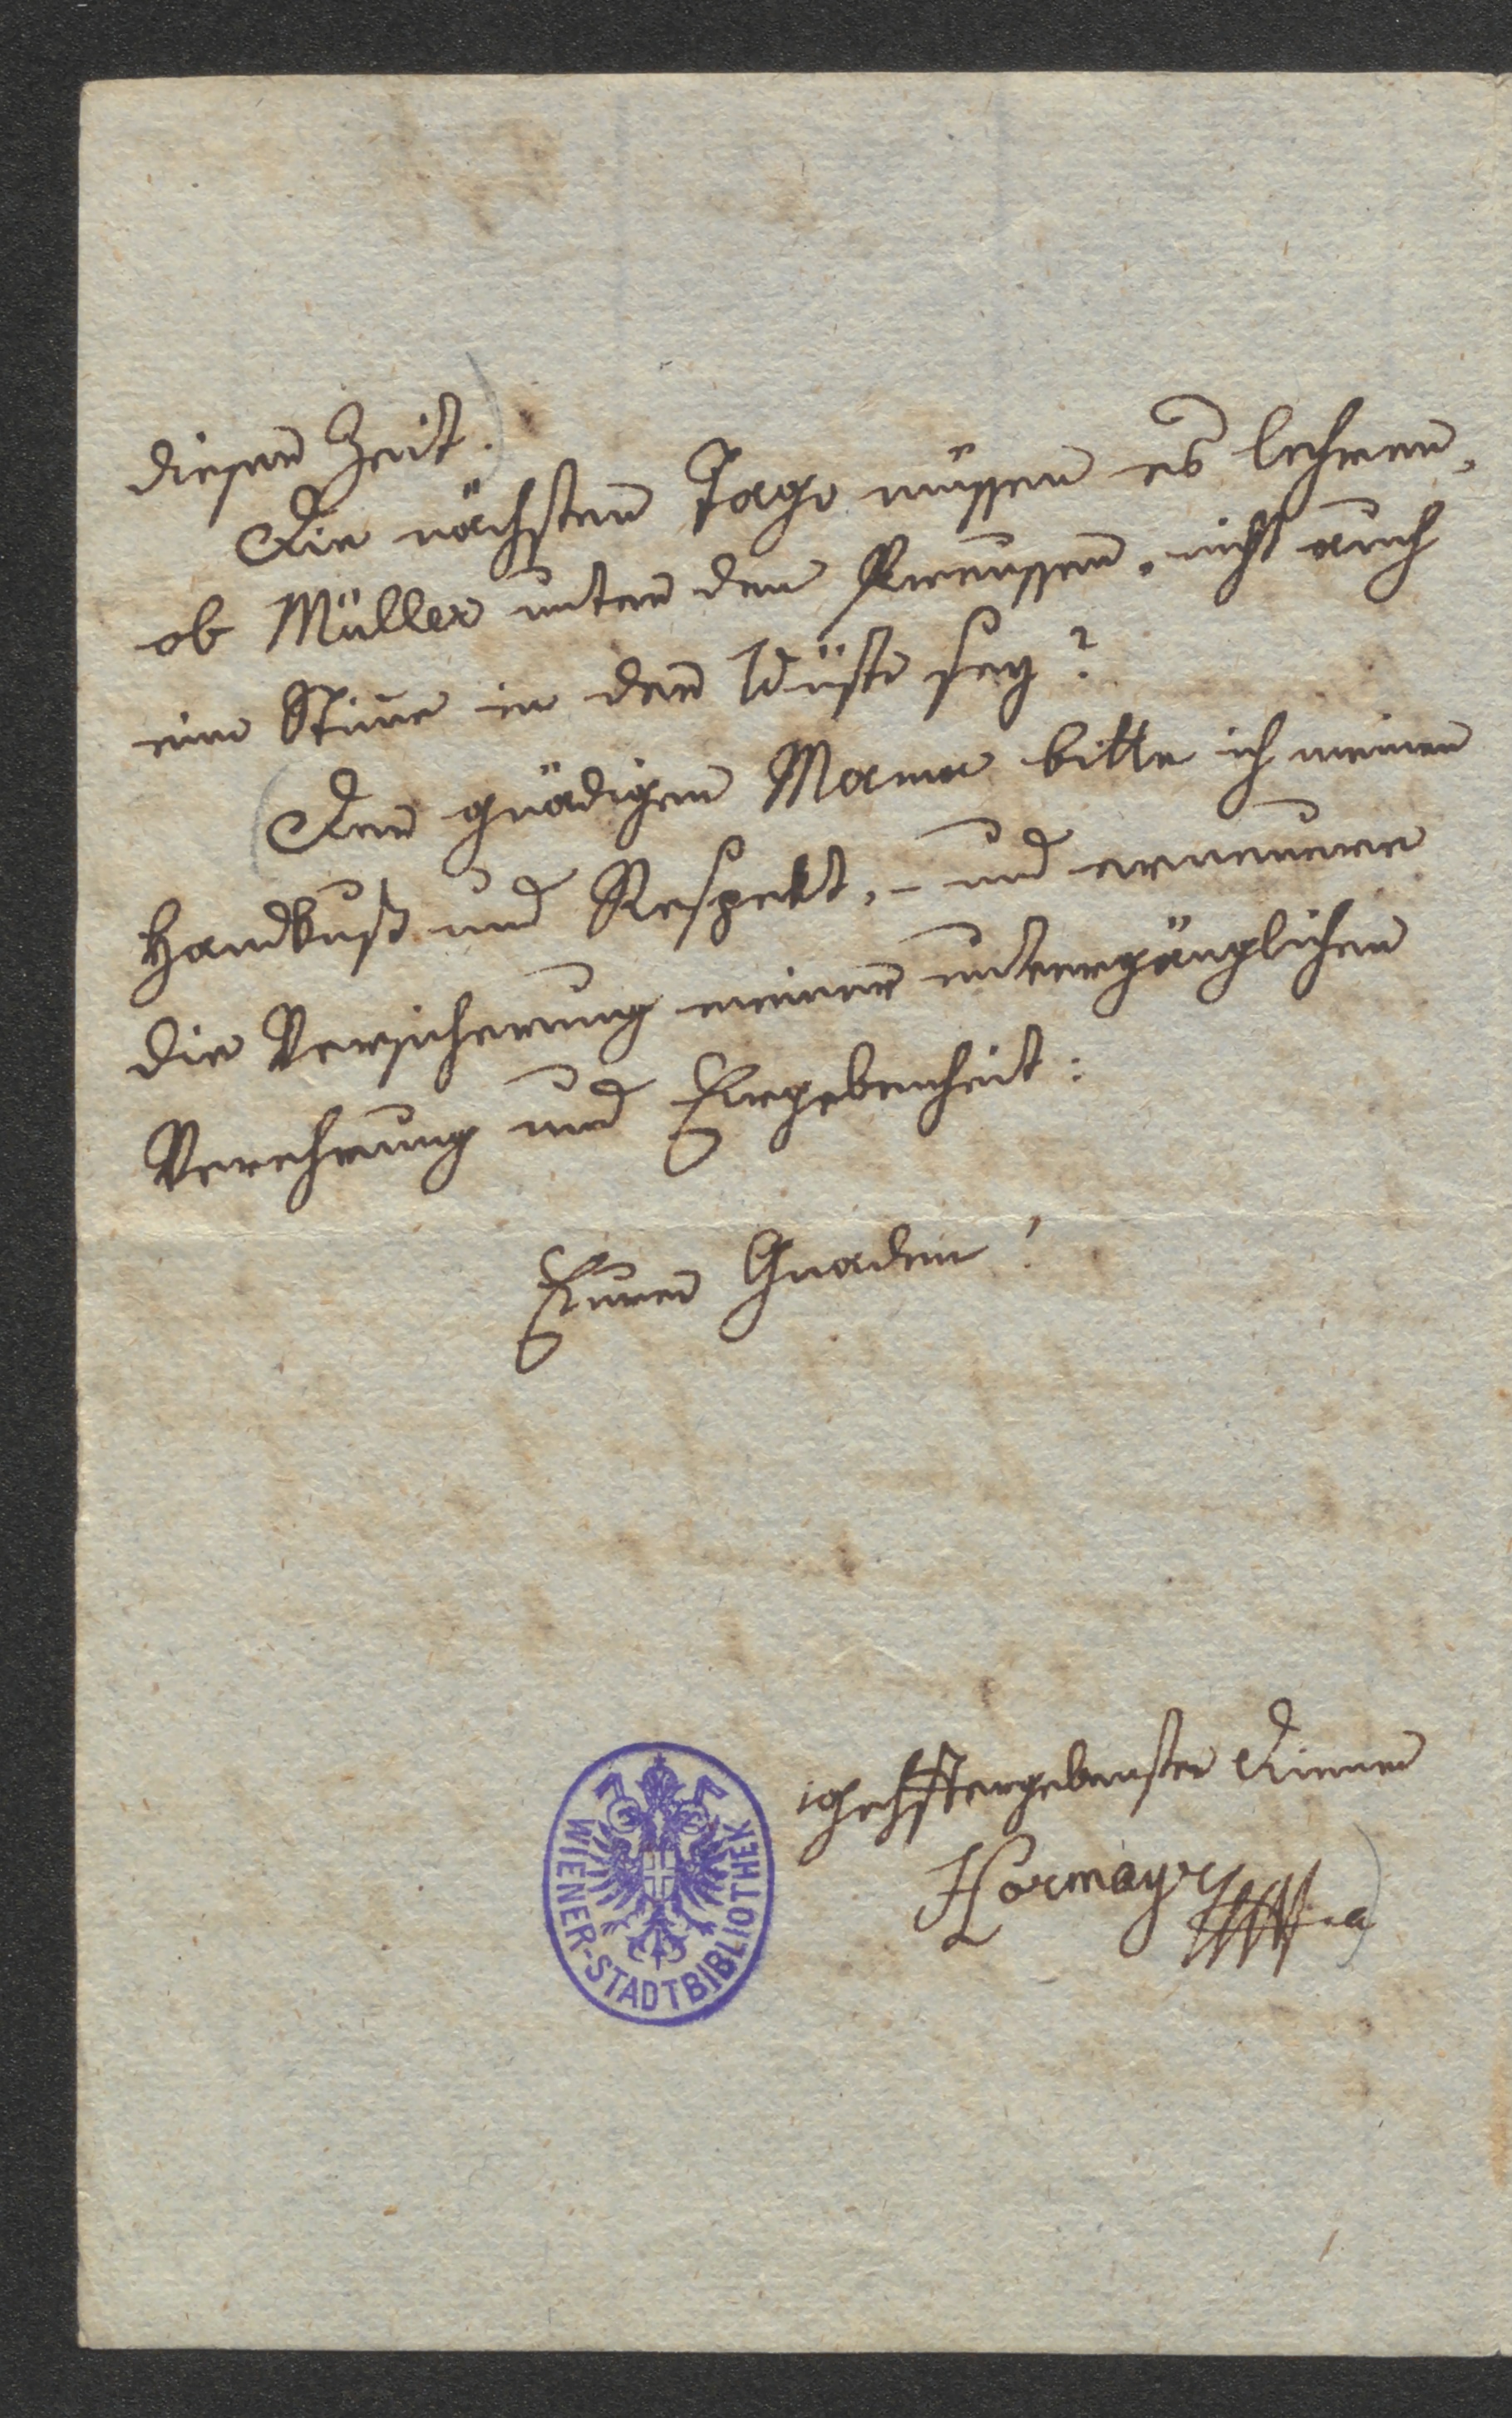 dieser Zeit.)
Die nächsten Tage müssen es lehren,
ob Müller unter den Preussen, nicht auch
eine Stime in der Wüste sey?
(Der gnädigen Mama bitte ich meinen
Handkuß und Respekt, – und erneuere
die Versicherung meiner unvergänglichen
Verehrung und Ergebenheit:
Euer Gnaden!
gehorstergebenster Diener
Hormayr
WIENER-STADTBIBLIOTHEK